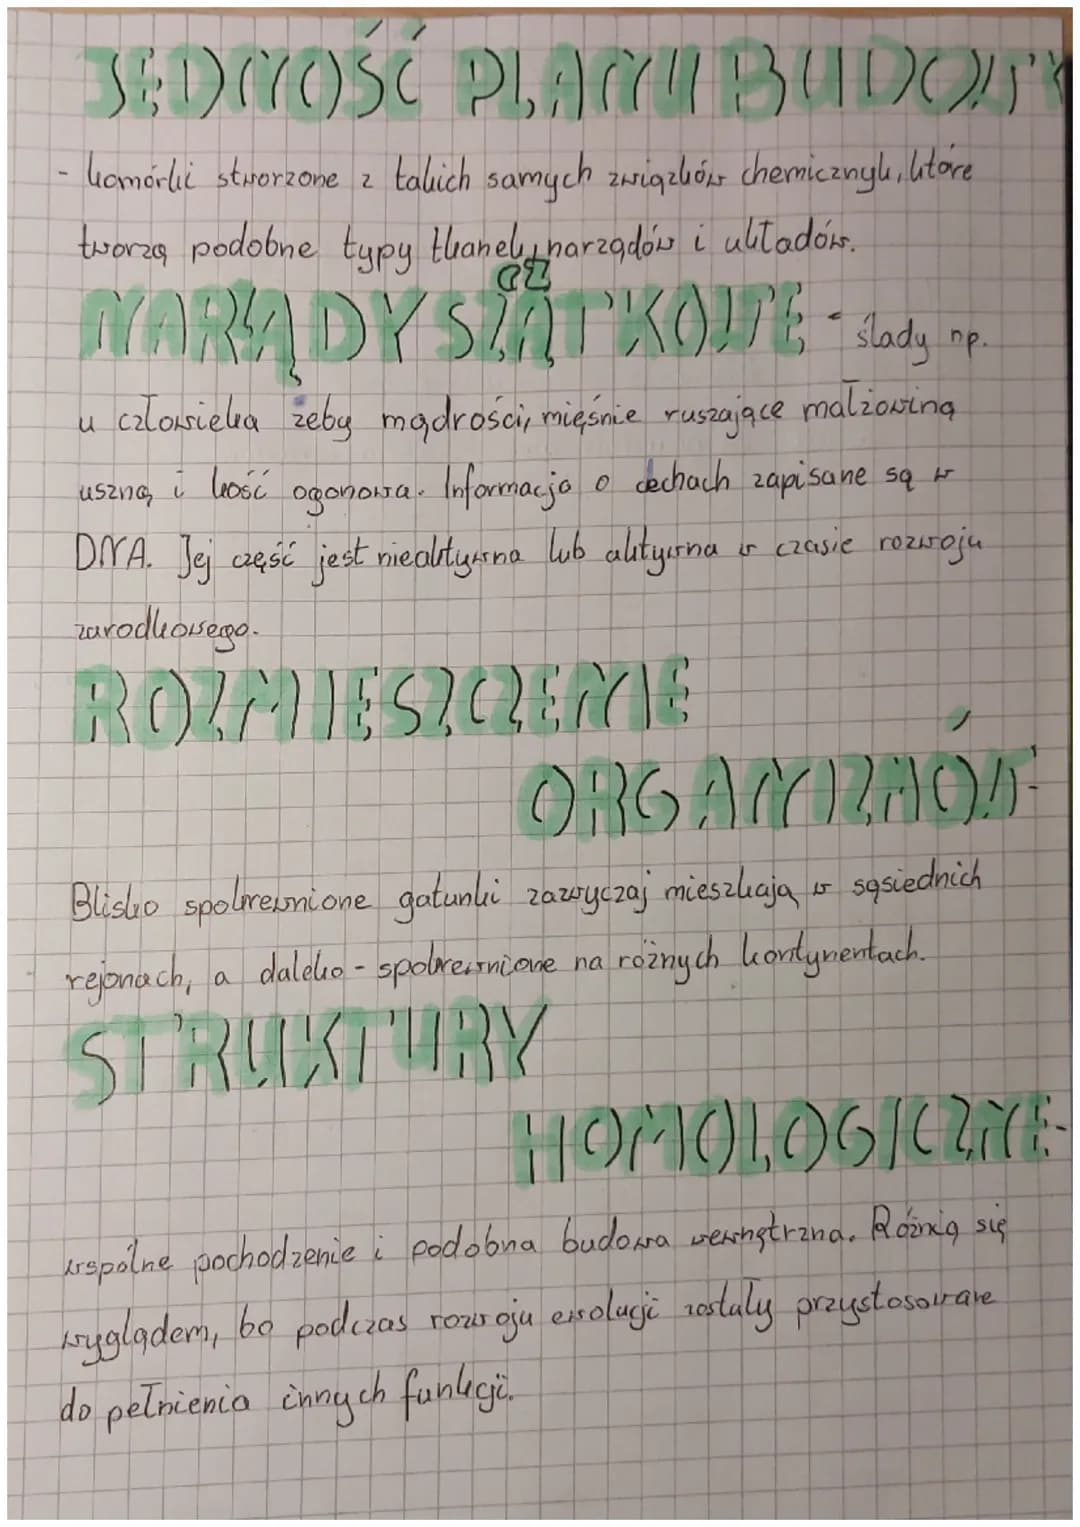 JEDNOŚĆ PLANU BUDOWY
- komórki stworzone z takich samych związków chemicznyh, które
tworzą podobne typy tkanek, narządów i układów.
NARĄDY SZĄTKOWE - ślady np.
CZ
u człowieka zęby mądrości, mięśnie ruszające małżowiną
uszną i kość ogonowa. Informacja o cechach zapisane są w
DNA. Jej część jest nieaktywna lub aktywna w czasie rozwoju
zarodkowego.
ROZMIESZCZENIE
ORGANIZMÓW-
Blisko spokrewnione gatunki zazwyczaj mieszkają w sąsiednich
rejonach, a daleko - spokrewnione na różnych kontynentach.
STRUKTURY
HOMOLOGICZNE-
wspólne pochodzenie i podobna budowa wewnętrzna. Różnią się
wyglądem, bo podczas rozwoju ewolucji zostały przystosowane
do pełnienia innych funkcji.